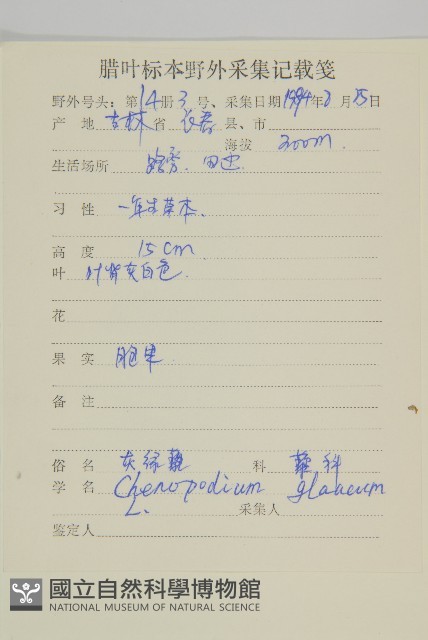 腊叶标本野外采集记载笺
野外号头：第14册3号、采集日期1994年8月25日
产 地 吉林省 长春 县、市
海拔 200m.
生活场所 路旁. 田边.
习 性 一年生草本.
高 度 15cm
叶 叶背灰白色.
花
果 实 胞果.
备 注
俗 名 灰绿藜 科 藜科
学 名 Chenopodium glaucum
L. 采集人
鉴定人
國立自然科學博物館
NATIONAL MUSEUM OF NATURAL SCIENCE